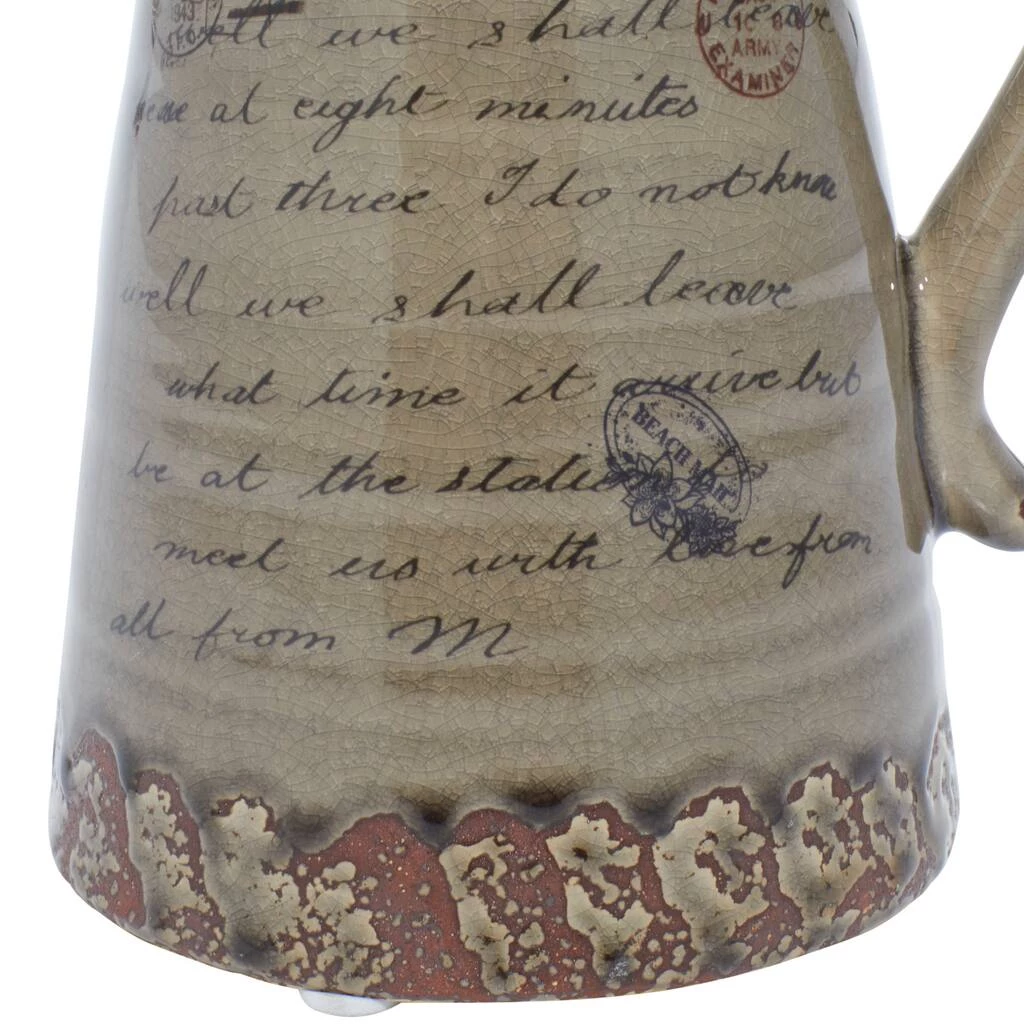 1943
well we shall leave
ARMY
EXAMINER
at eight minutes
past three I do not know
well we shall leave
what time it arrive but
BEACH
be at the station
meet us with love from
all from M